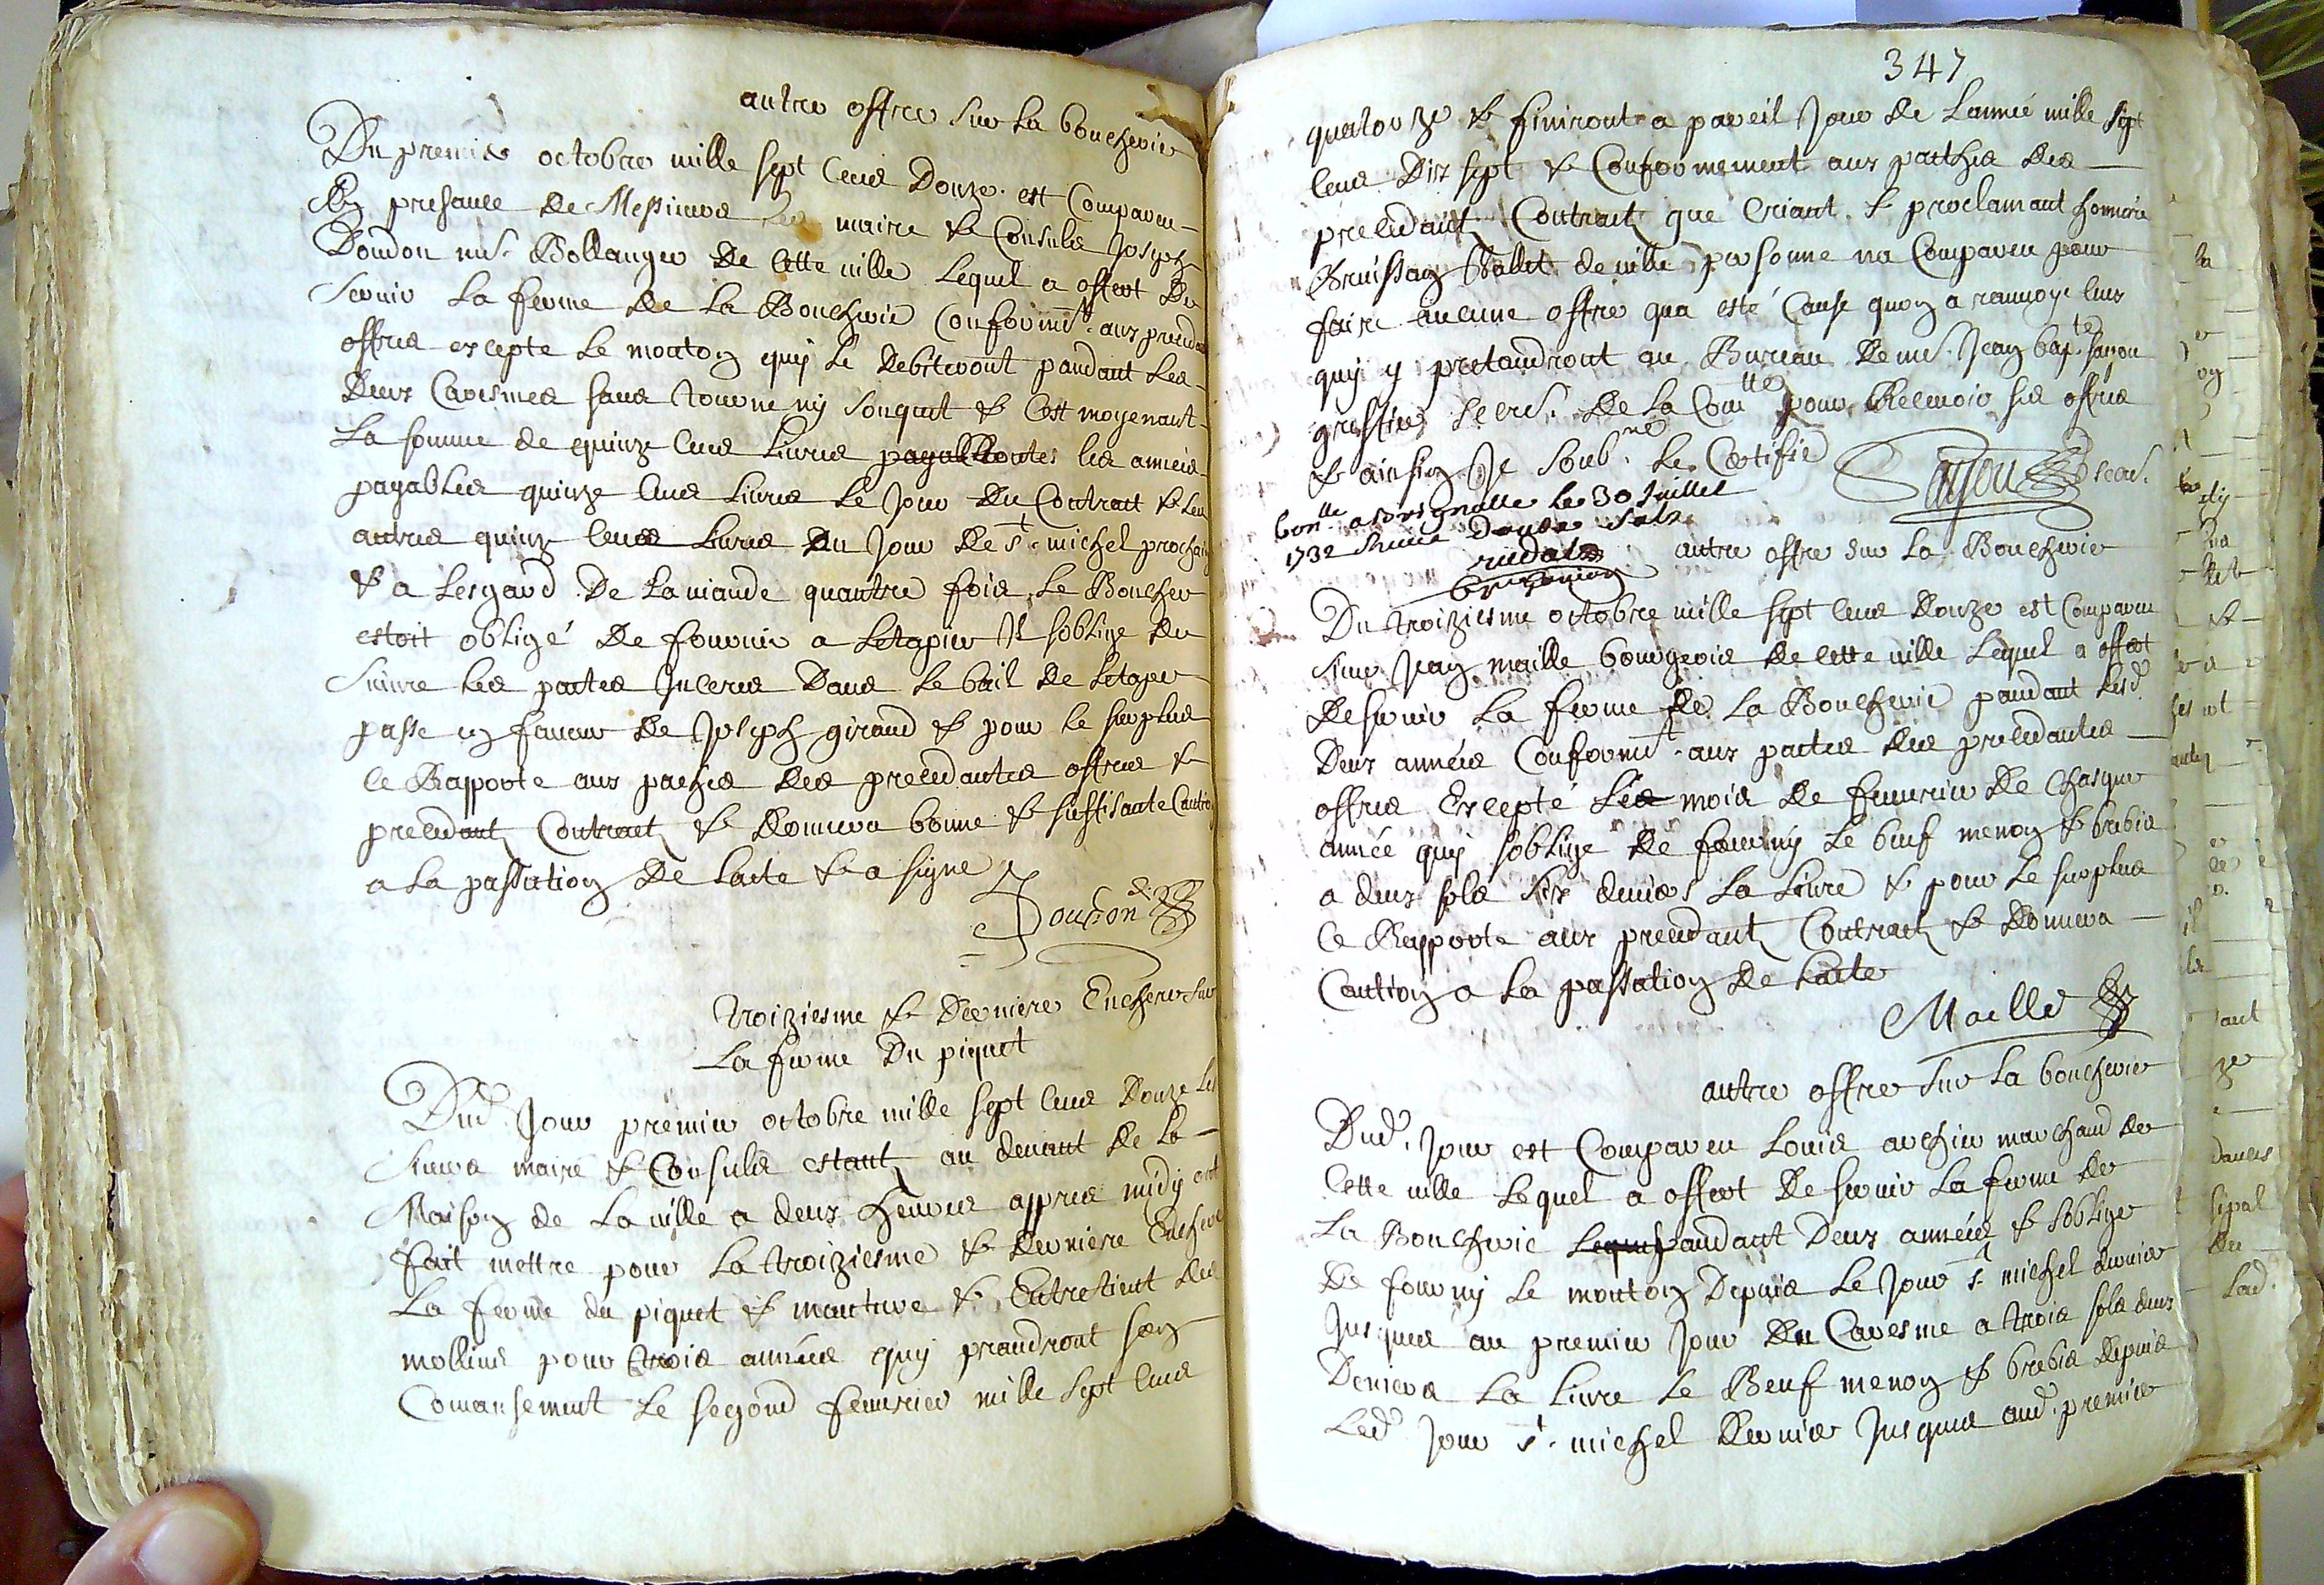 autre offre sur la boucherie
Du premier octobre mille sept cens Douze est Comparu
En presance de Messieurs les maire & Consuls Joseph
Doudon mre Bollanger de cette ville Lequel a offert De
servir La ferme de la Boucherie Conformt aux precedans
offres excepte Le mouton quy se debiteront pandant les
deux Caresmes sans tourne ny souquet & Cest moyenant
La somme de quinze cens Livres toutes les années
payables quinze cens Livres Le Jour du Contrat & les
autres quinze cens Livres Du Jour de st. michel prochain
& a Lesgard De La viande quautre fois Le Boucher
estoit obligé De fournir a Letapier Il soblige de
suivre les pactes Inceres Dans Le bail de Letapier
passe en faveur de Joseph giraud & pour le surplus
ce Rapporte aux paches des precedantes offres &
precedant Contract & Donnera bonne & suffisante Caution
a La passation De Lacte & a signe
Doudon
troiziesme & Derniere Enchere sur
La ferme Du piquet
Dud. Jour premier octobre mille sept cens Douze Les
sieurs maire & Consuls estant au devant de la
Maison de La ville a deux heures appres midy ont
fait mettre pour La troiziesme & derniere Enchere
La ferme du piquet & mouture & Entretient des
mollins pour trois années quy prandront son
Comansement Le segond feuvrier mille sept cens
347
quatorze & finiront a pareil Jour de Lannée mille sept
cens Dix sept & Conformement aux paches des
precedant Contract que Criant & proclamant honnoré
Bruissan Vallet de ville personne na Comparu pour
faire aucune offre qua esté Cause quon a renvoyé ceux
quy y pretandront au Bureau de mre Jean bapte sajou
greffier secre. De La Comtte pour Recevoir ses offres
& ainsin Je soubne. Le Certifie
Sajou secre.
bonlle a lorignalle le 30 Juillet
1732
autre offre sur La Boucherie
Du troiziesme octobre mille sept cens Douze est Comparu
sieur Jean maille bourgeois de cette ville Lequel a offert
De servir La ferme de La Boucherie pandant lesd.
Deux années Conformt. aux pactes des precedantes
offres Excepté Les mois de feuvrier De chasque
année quy soblige de fourny Le beuf menon & brebis
a deux sols six deniers La Livre & pour Le surplus
ce Rapporte aux precedant Contract & donnera
Caution a la passation de Lacte
Maille
autre offre sur La boucherie
Dud. Jour est Comparu Louis archier marchand de
Cette ville Lequel a offert De servir La ferme de
La Boucherie pandant Deux années & soblige
De fourny Le mouton Depuis Le Jour st. michel dernier
Jusques au premier Jour Du Caresme a trois sols deux
Deniers La Livre Le Beuf menon & brebis depuis
Led. Jour st. michel Dernier Jusques aud. premier